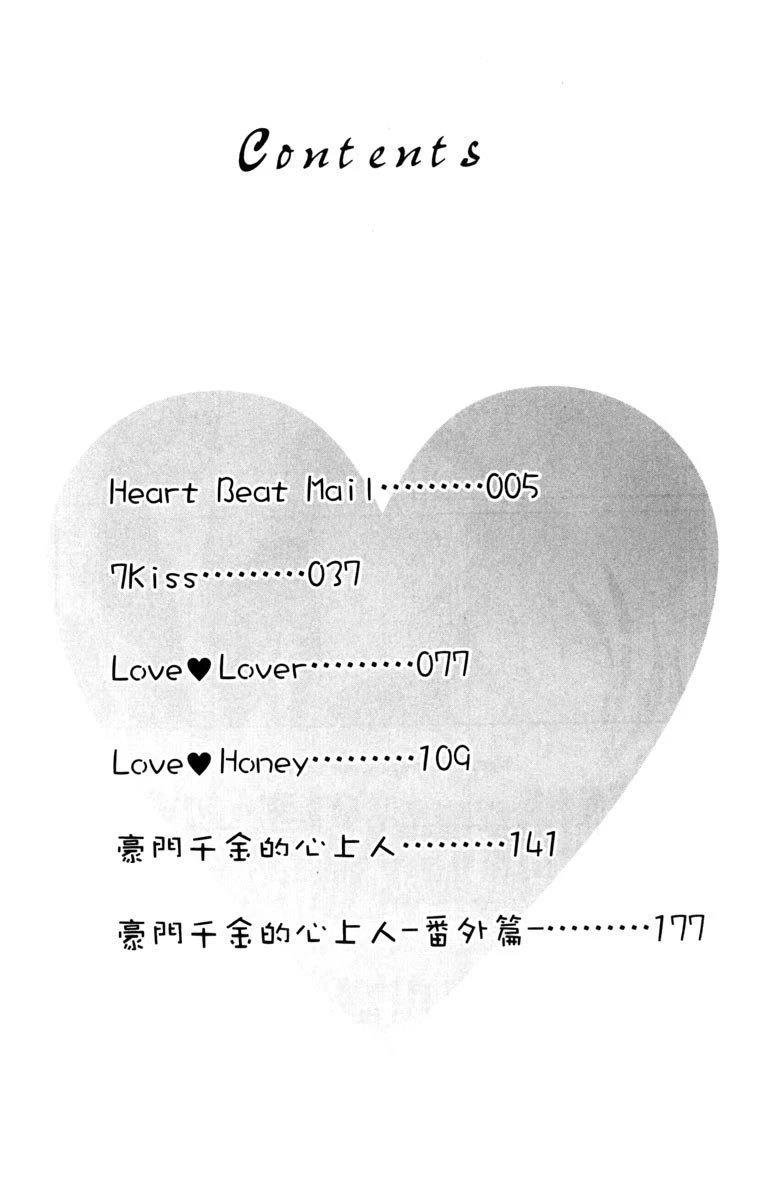 Contents
Heart Beat Mail………005
7Kiss………037
Love♥Lover………077
Love♥Honey………109
豪門千金的心上人………141
豪門千金的心上人-番外篇-………177